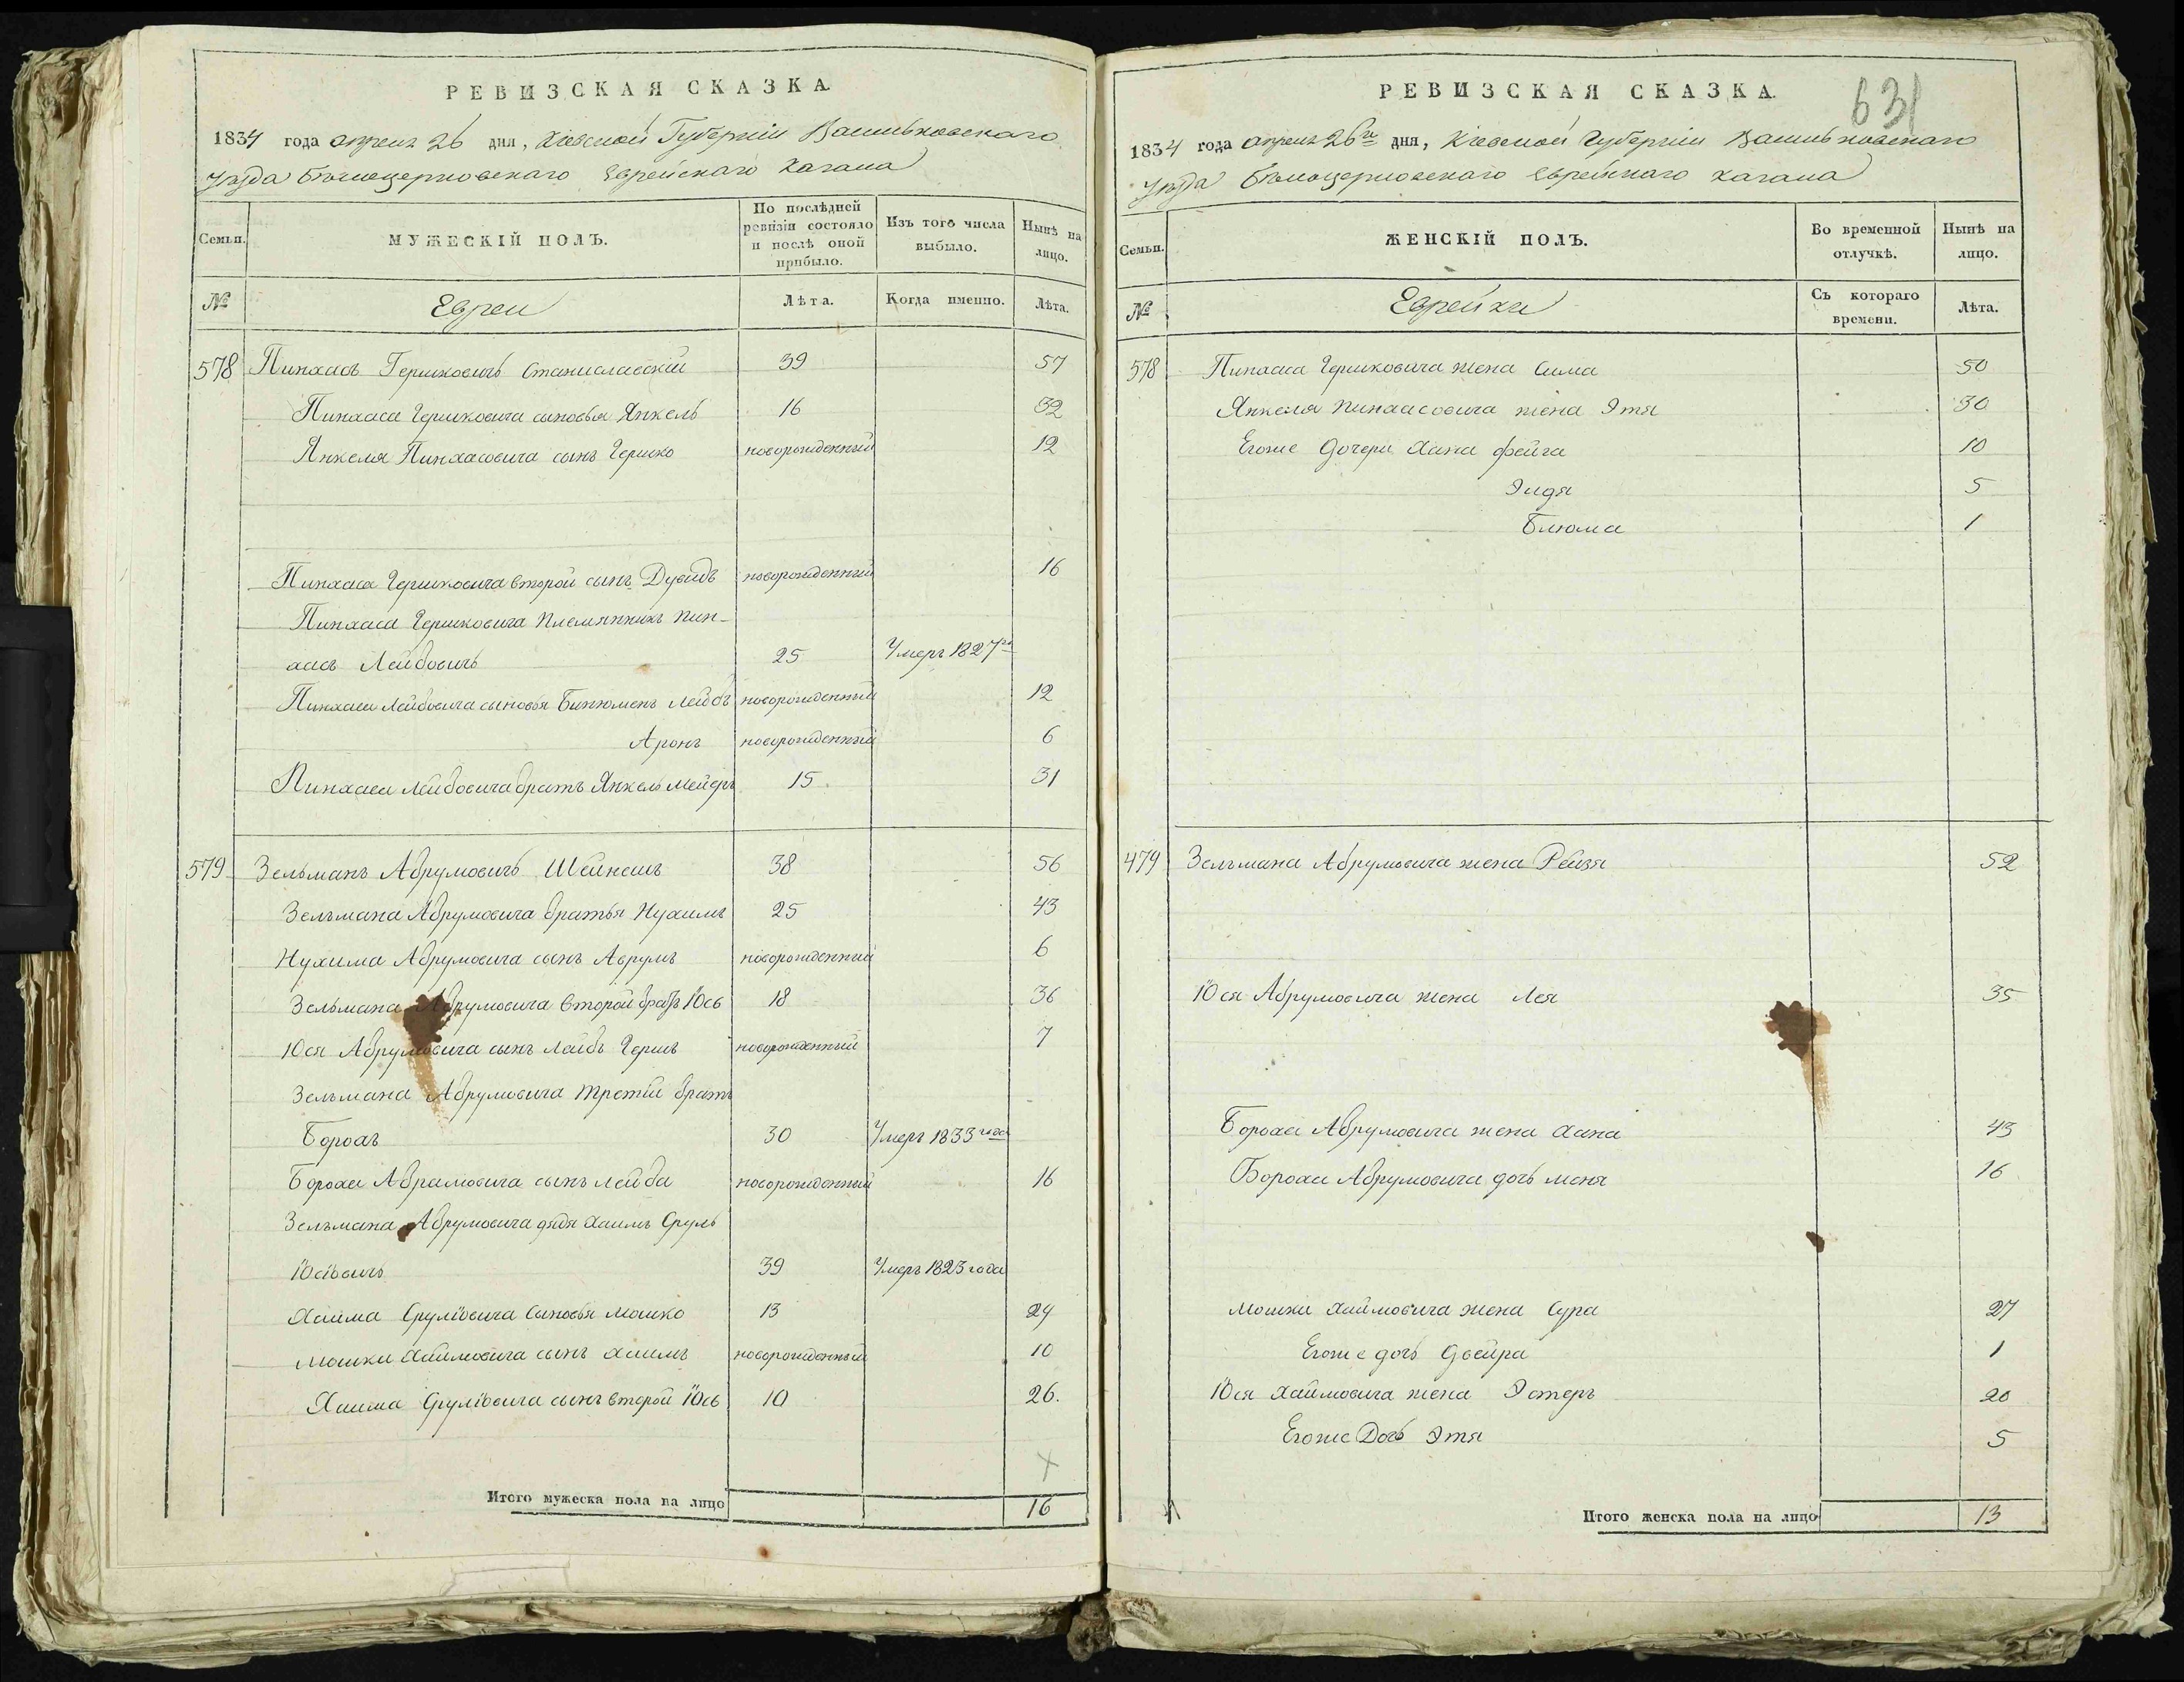 РЕВИЗСКАЯ СКАЗКА.
1834 года апреля 26 дня, Кіевской Губерніи Васильковскаго
уѣзда Бѣлоцерковскаго Еврейскаго Кагала
Семьи.
МУЖЕСКІЙ ПОЛЪ.
По послѣдней ревизіи состояло и послѣ оной прибыло.
Изъ того числа выбыло.
Нынѣ на лицо.
№
Евреи
Лѣта.
Когда именно.
Лѣта.
578 Пинхасъ Гершковичъ Станиславскій 39 57
Пинхаса Гершковича сыновья Янкель 16 32
Янкеля Пинхасовича сынъ Гершко новорожденный 12
Пинхаса Гершковича второй сынъ Дувидъ новорожденный 16
Пинхаса Гершковича племянникъ Пин-
хасъ Лейбовичъ 25 Умеръ 1827го
Пинхаса Лейбовича сыновья Бинюменъ Лейбъ новорожденный 12
Аронъ новорожденный 6
Пинхаса Лейбовича братъ Янкель Мейеръ 15 31
579 Зельманъ Абрумовичъ Шейнешъ 38 56
Зельмана Абрумовича братья Нухимъ 25 43
Нухима Абрумовича сынъ Аврумъ новорожденный 6
Зельмана Абрумовича второй братъ Юсь 18 36
Юся Абрумовича сынъ Лейбъ Гершъ новорожденный 7
Зельмана Абрумовича третій братъ
Борохъ 30 Умеръ 1833 года
Бороха Абрамовича сынъ Лейба новорожденный 16
Зельмана Абрумовича дядя Хаимъ Сруль
Юсіовичъ 39 Умеръ 1823 года
Хаима Cруліовича Сыновья Мошко 13 29
Мошки Хаймовича сынъ Хаимъ новорожденный 10
Хаима Сруліовича сынъ второй Юсь 10 26.
Итого мужеска пола на лицо 16
631
РЕВИЗСКАЯ СКАЗКА.
1834 года апреля 26го дня, Кіевской Губерніи Васильковскаго
уѣзда Бѣлоцерковскаго Еврейскаго Кагала
Семьи.
ЖЕНСКІЙ ПОЛЪ.
Во временной отлучкѣ.
Нынѣ на лицо.
№
Еврейки
Съ котораго времени.
Лѣта.
578 Пинхаса Гершковича жена Сима 50
Янкеля Пинхасовича жена Этя 30
Егоже дочери Хана Фейга 10
Эидя 5
Блюма 1
479 Зельмана Абрумовича жена Рейзя 52
Юся Абрумовича жена Лея 35
Бороха Абрумовича жена Хана 43
Бороха Абрумовича дочь Меня 16
Мошки Хаймовича жена Сура 27
Егоже дочь Двейра 1
Юся Хаймовича жена Эстеръ 20
Егоже Дочь Этя 5
Итого женска пола на лицо 13